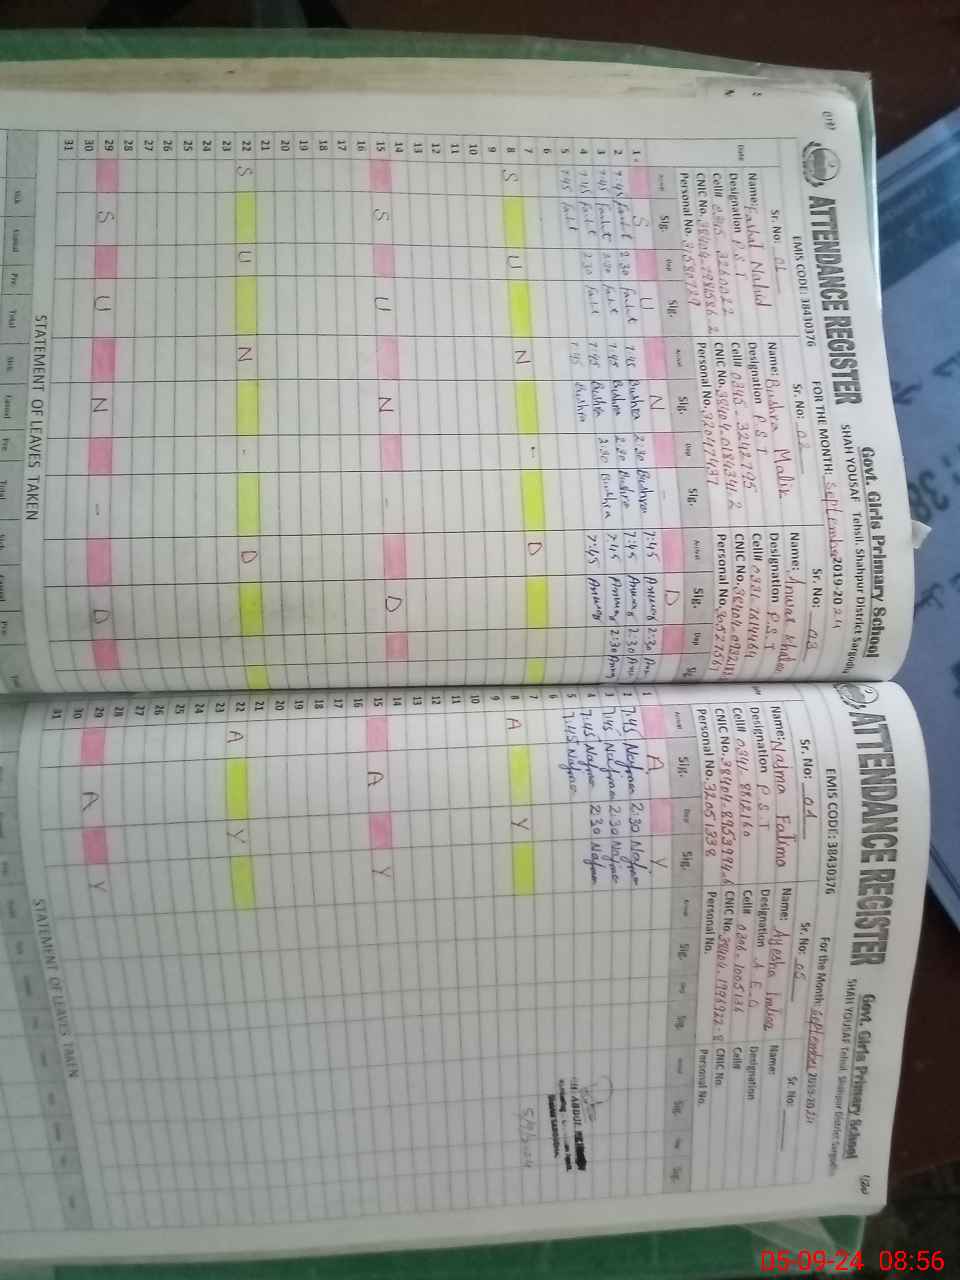 ATTENDANCE REGISTER
Govt. Girls Primary School
SHAH YOUSAF Tehsil. Shahpur District Sargodha
EMIS CODE: 38430376
FOR THE MONTH: September 2019-2024
Sr. No: 01
Sr. No: 02
Sr. No: 03
Name:
Designation P.S.T
Cell#
CNIC No.
Personal No. 31580729
Name: Bushra Malik
Designation P.S.T
Cell# 0345-3242795
CNIC No. 38404-0184341-2
Personal No. 32047437
Name: Anwar
Designation P.S.T
Cell# 0331-7614464
CNIC No.
Personal No. 30527567
Date Arrival Sig. Dep Sig. Arrival Sig. Dep Sig. Arrival Sig. Dep Sig.
1 S U N - D
2 7:45 2:30 7:45 Bushra 2:30 Bushra 7:45 Anwar 2:30
3 7:45 2:30 7:45 Bushra 2:30 Bushra 7:45 Anwar 2:30
4 7:45 2:30 7:45 Bushra 2:30 Bushra 7:45 Anwar 2:30
5 7:45 7:45 Bushra 7:45 Anwar
6
7
8 S U N - D
9
10
11
12
13
14
15 S U N - D
16
17
18
19
20
21
22 S U N - D
23
24
25
26
27
28
29 S U N - D
30
31
STATEMENT OF LEAVES TAKEN
Sick Casual Pre: Total Sick Casual Pre: Total Sick Casual Pre: Total
ATTENDANCE REGISTER
Govt. Girls Primary School
SHAH YOUSAF Tehsil. Shahpur District Sargodha
EMIS CODE: 38430376
For the Month: September 2019-2024
Sr. No: 04
Sr. No: 05
Sr. No:
Name: Najma Fatima
Designation P.S.T
Cell# 0341-8812160
CNIC No. 38404-8953994-6
Personal No. 32051338
Name: Ayesha Imtiaz
Designation A.E.O
Cell# 0306-1005136
CNIC No. 38404-1996922-8
Personal No.
Name:
Designation
Cell#
CNIC No.
Personal No.
Arrival Sig. Dep Sig. Arrival Sig. Dep Sig. Arrival Sig. Dep Sig.
1 A Y
2 7:45 Najma 2:30 Najma
3 7:45 Najma 2:30 Najma
4 7:45 Najma 2:30 Najma
5 7:45 Najma
6
7
8 A Y
9
10
11
12
13
14
15 A Y
16
17
18
19
20
21
22 A Y
23
24
25
26
27
28
29 A Y
30
31
ABDUL
5/9/2024
STATEMENT OF LEAVES TAKEN
05-09-24 08:56